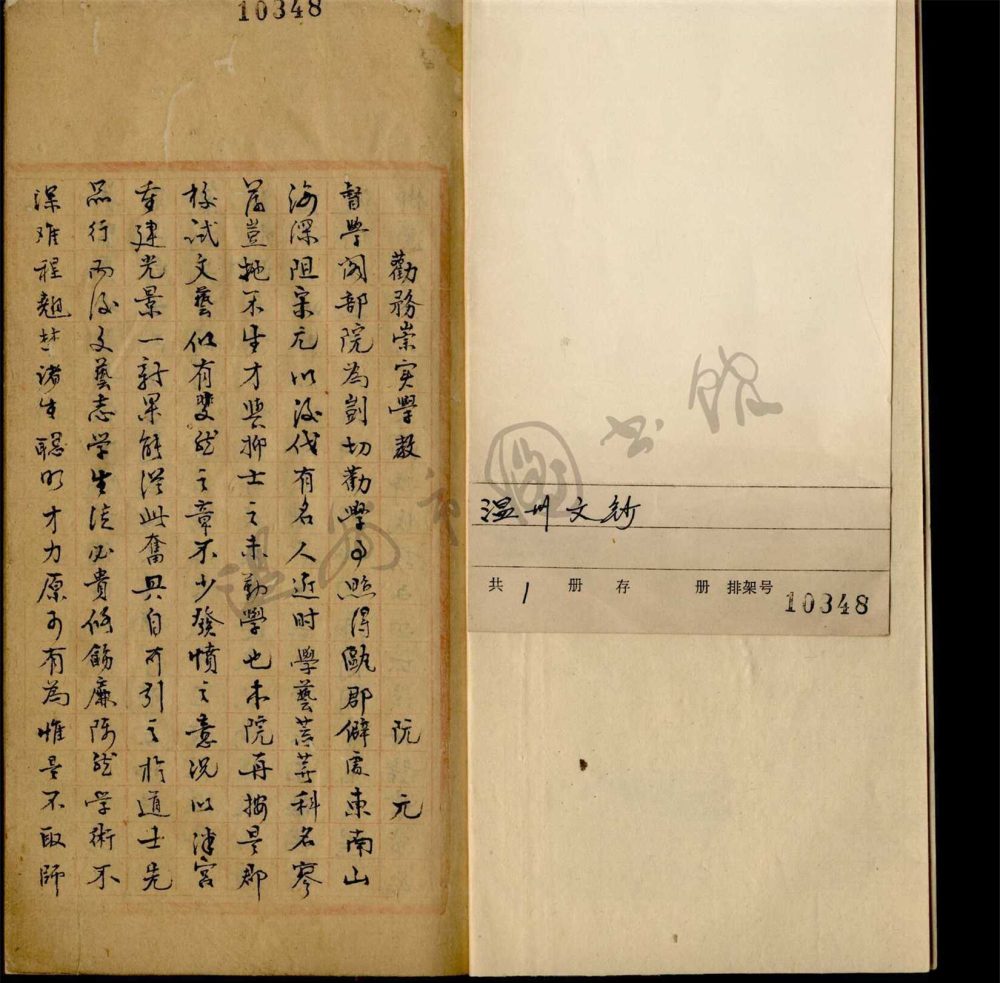 10348
勸務崇实學教 阮元
督學阁部院為剴切勸學事照得甌郡僻處東南山
海深阻宋元以後代有名人近时學藝荒蕪科名寥
落豈地不生才與抑士之未勤學也本院再按是郡
校試文藝似有斐然之章不少發憤之意况以泮宮
重建光景一新果能從此奮興自可引之於道士先
品行而後文藝志学生徒必貴修飭廉隅然学術不
深难程趨諸生聪明才力原可有為惟是不取師
温州市图书馆
温州文钞
共1册存 册 排架号 10348